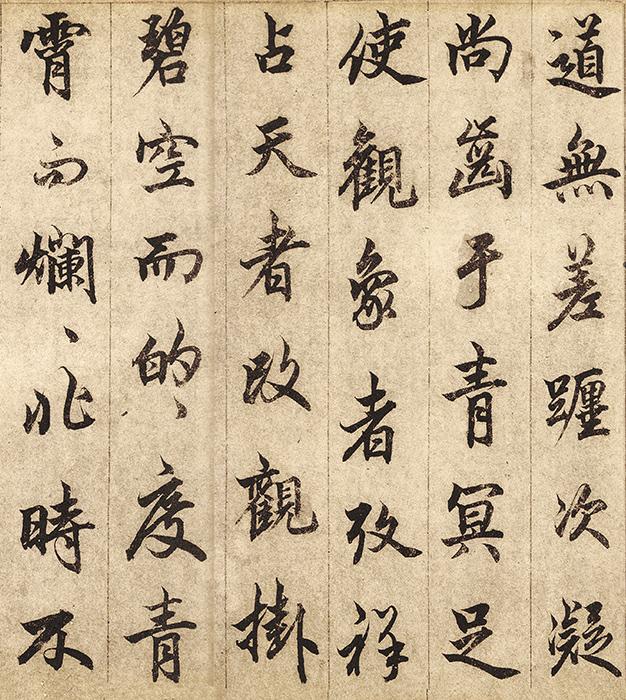 道無差躔次凝
尚齒于青冥足
使觀象者攷祥
占天者改觀掛
碧空而的、度青
霄而爛、非時不